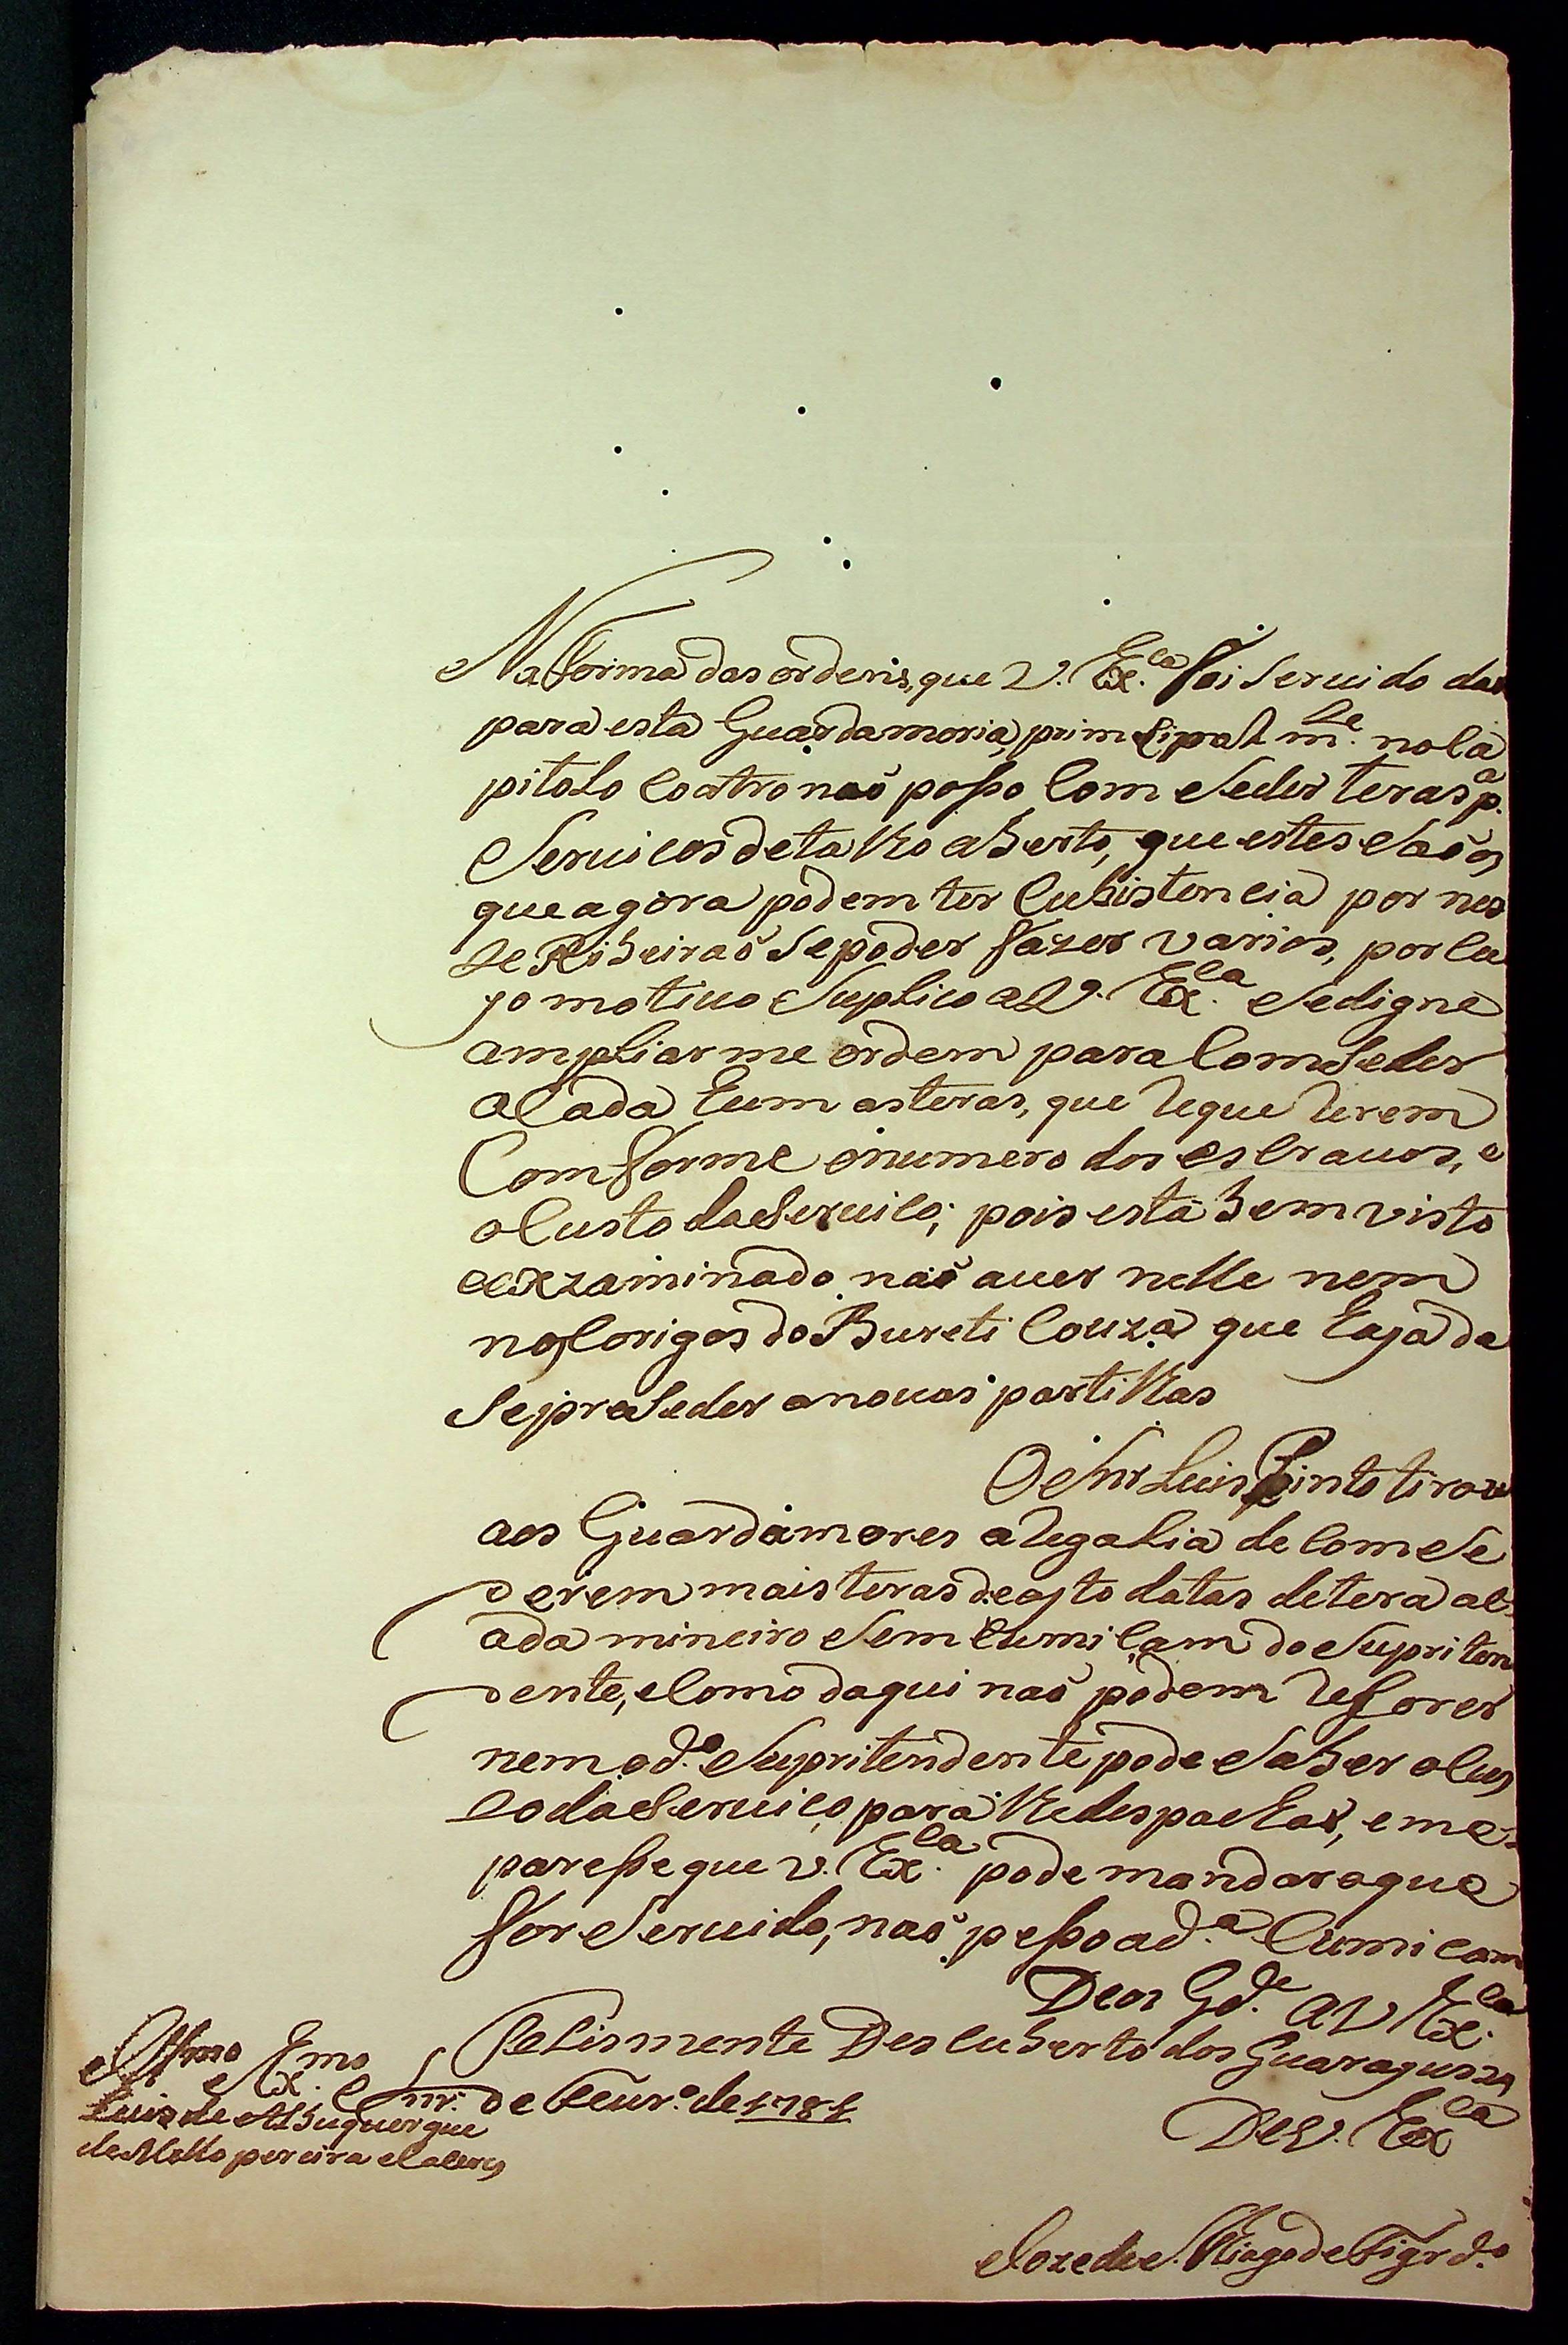 Na forma das ordens, que V. Ex.ca foi seruido dar
para esta Guardamoria, primsipalm.te no ca
pitolo coatro não posso comseder teras p.a
seruicos de talho aberto, que estes são os
que agora podem ter cubistencia por nes
te Ribeirão se poder fazer varios, por cu
jo motiuo suplico a V. Ex.ca se digne
ampliarme ordem para comseder
a cada hum as teras, que requererem
comforme o numero dos escrauos, e
o custo do seruico; pois está bem visto
e exzaminado não auer nelle nem
nos corigos do Bureti couza que haja de
se preseder a nouas partilhas
O Snr Luis Pinto tirou
aos Guardamores a regalia de comse
derem mais teras de oyto datas de tera a c
ada mineiro sem cumicam do Supriten
dente, e como daqui não podem recorer
nem o d.o Supritendente pode saber o cus
to do seruico para lhe despachar, e me
paresse que V. Ex.ca pode mandar o que
for seruido, não pesso a d.a cumicam
Deos G.de a V Ex.ca
felismente Descuberto dos Guaragus 29
de Feur.o de 1781
Illmo e Ex.mo Snr.
Luis de Albuquerque
de Mello pereira e Caceres
De V. Ex.ca